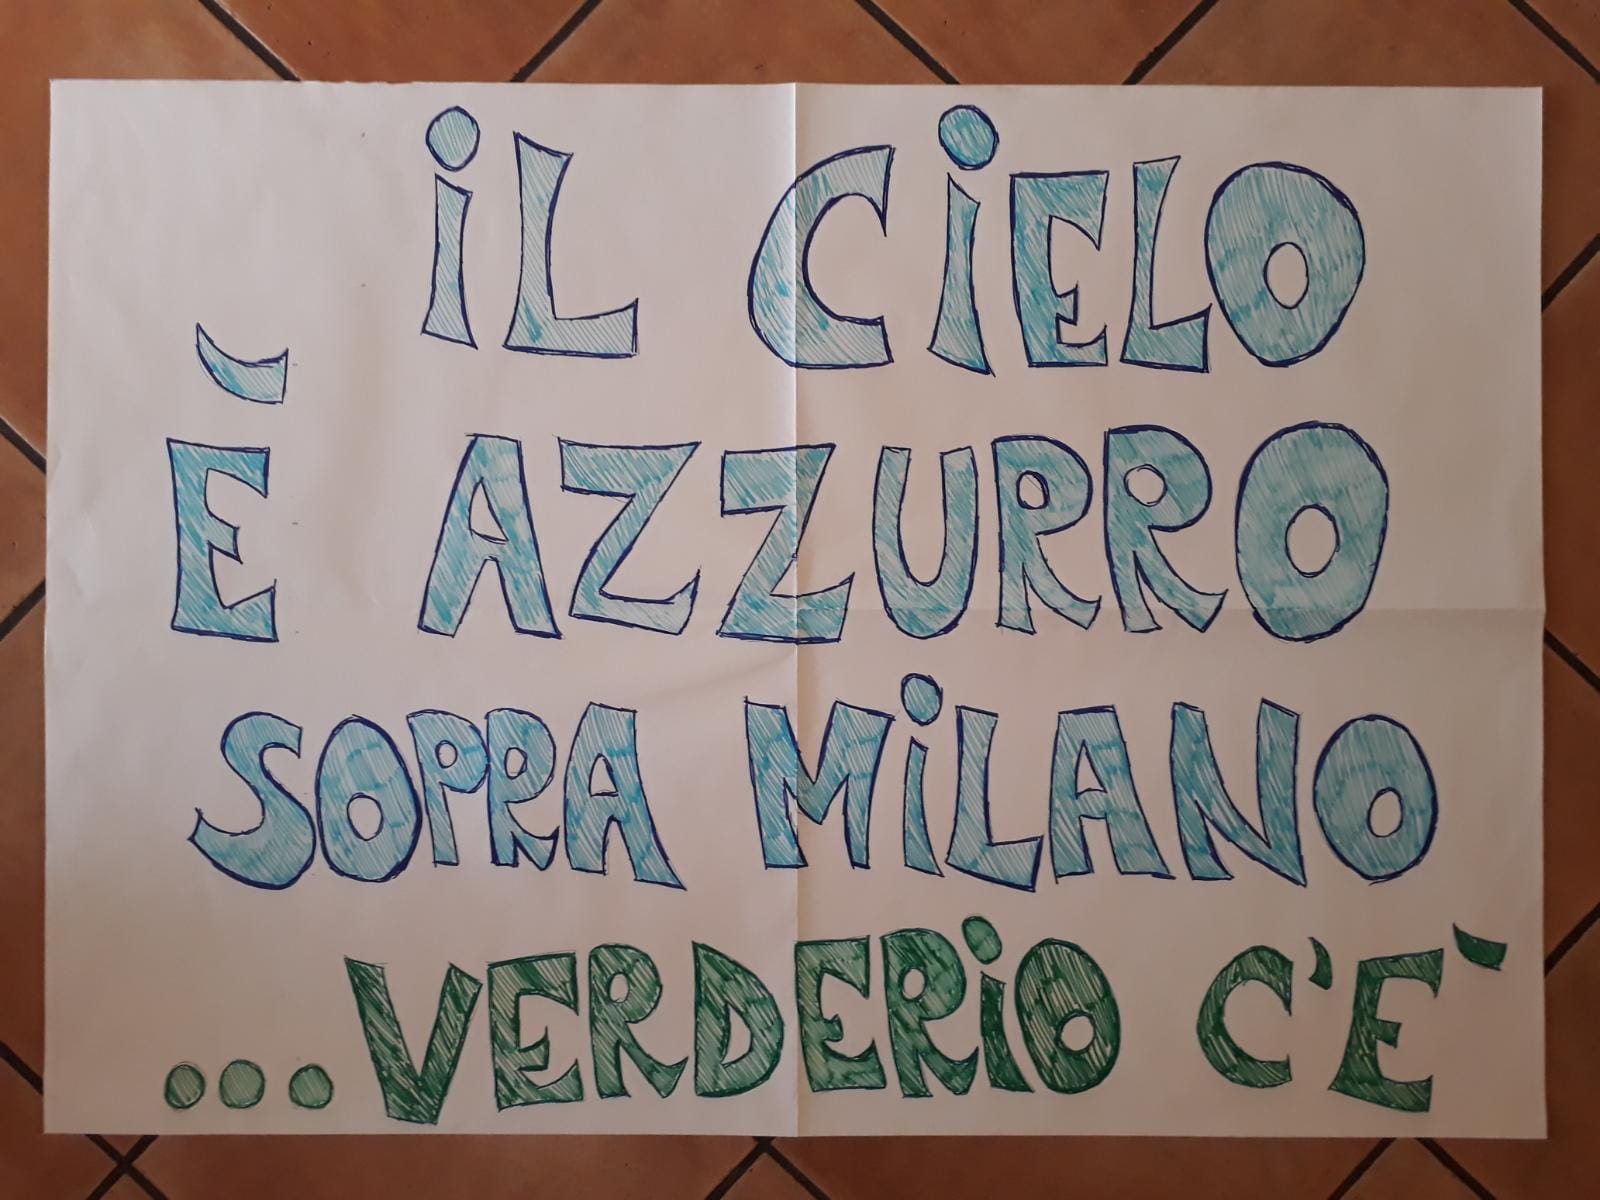 iL CiELO
È AZZURRO
SOPRA MiLANO
...VERDERiO C'E`